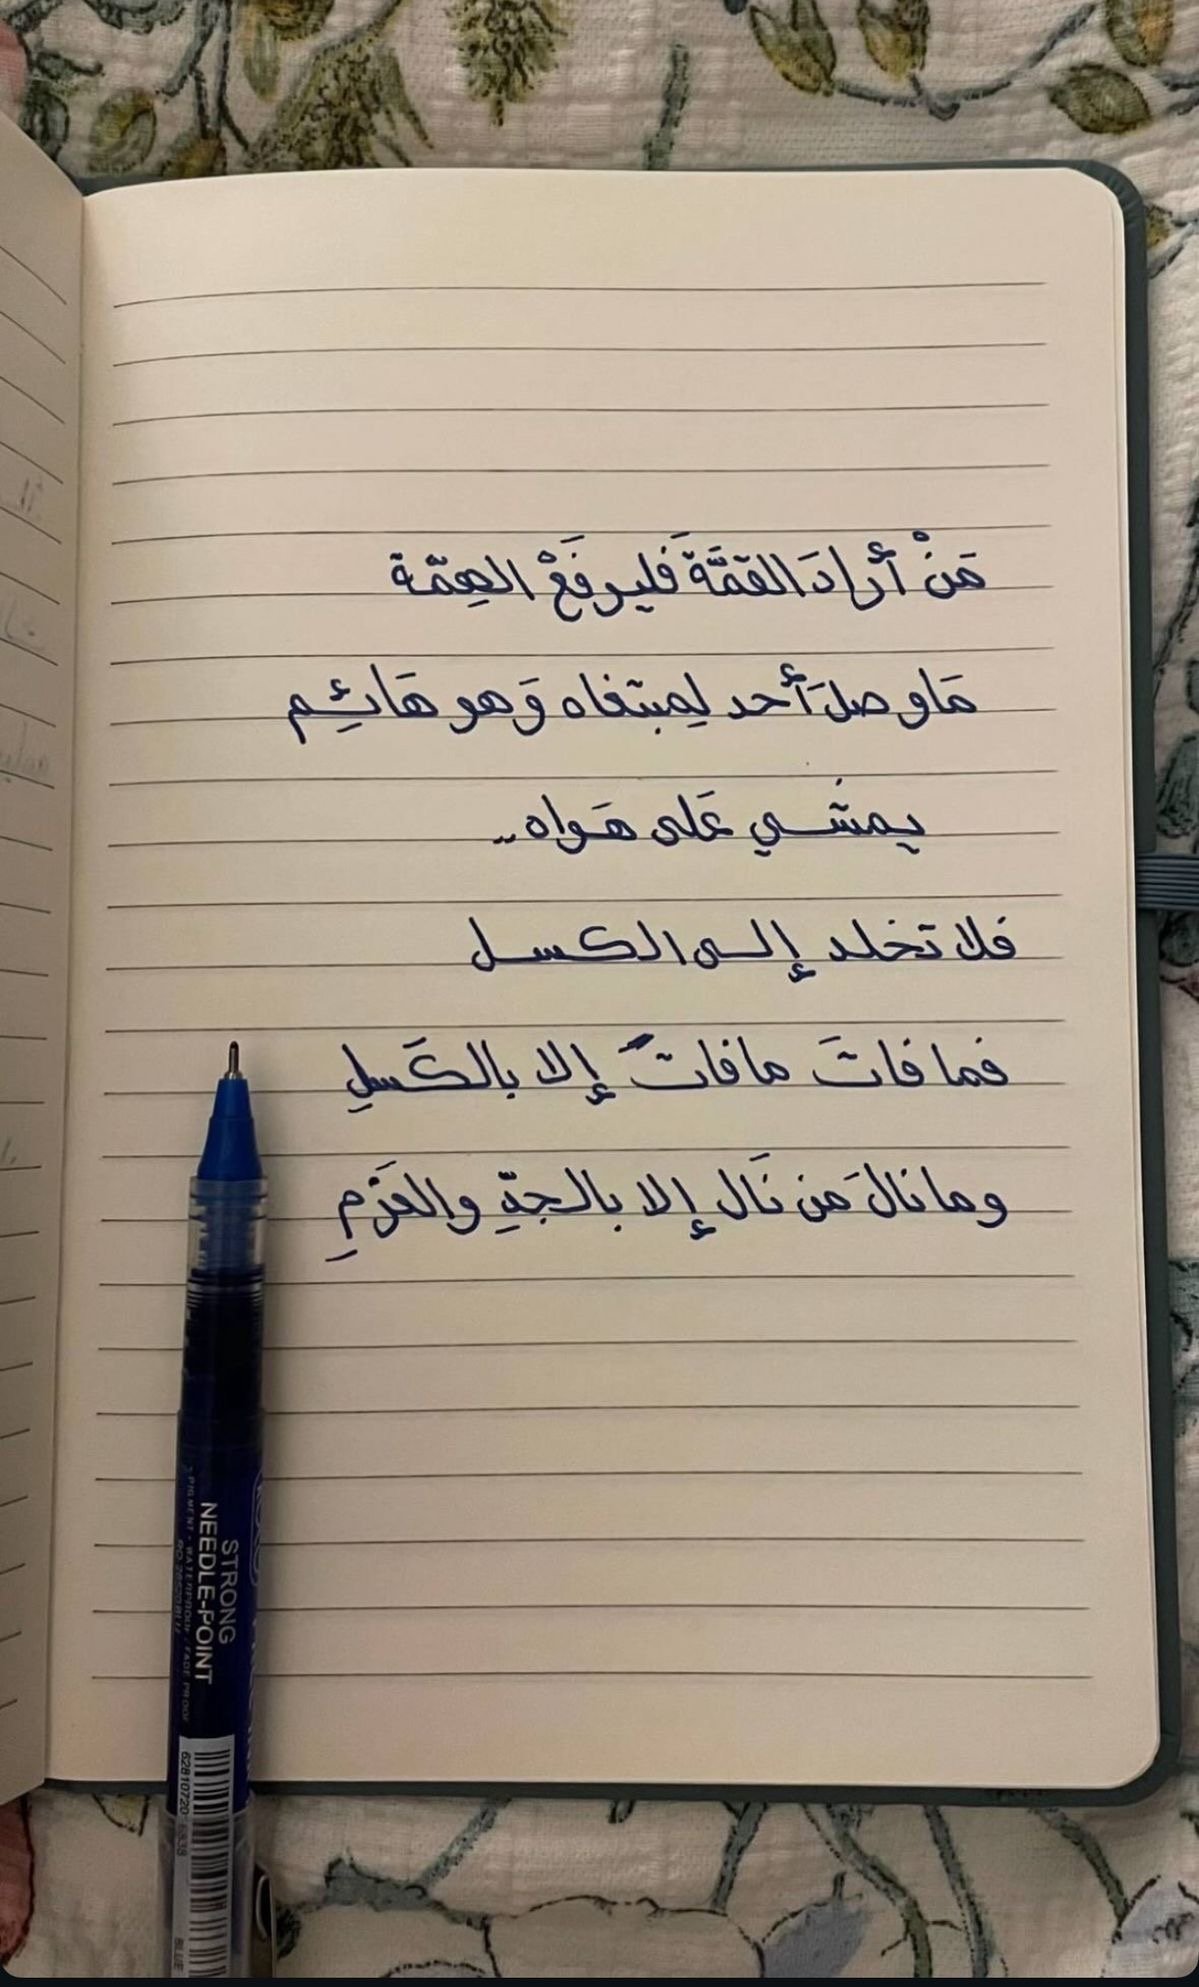 مَنْ أرادَ القمَّةَ فَليرفَعْ الهِمّة
مَاوصلَ أحد لِمبتغاه وَهو هَائِم
يمشي عَلى هَواه..
فلا تخلد إلى الكسل
فما فاتَ مافاتَ إلا بالكَسلِ
ومانالَ مَن نَال إلا بالجدِّ والعَزمِ
STRONG
NEEDLE-POINT
PIGMENT - WATERPROOF - FADE PROOF
BLUE